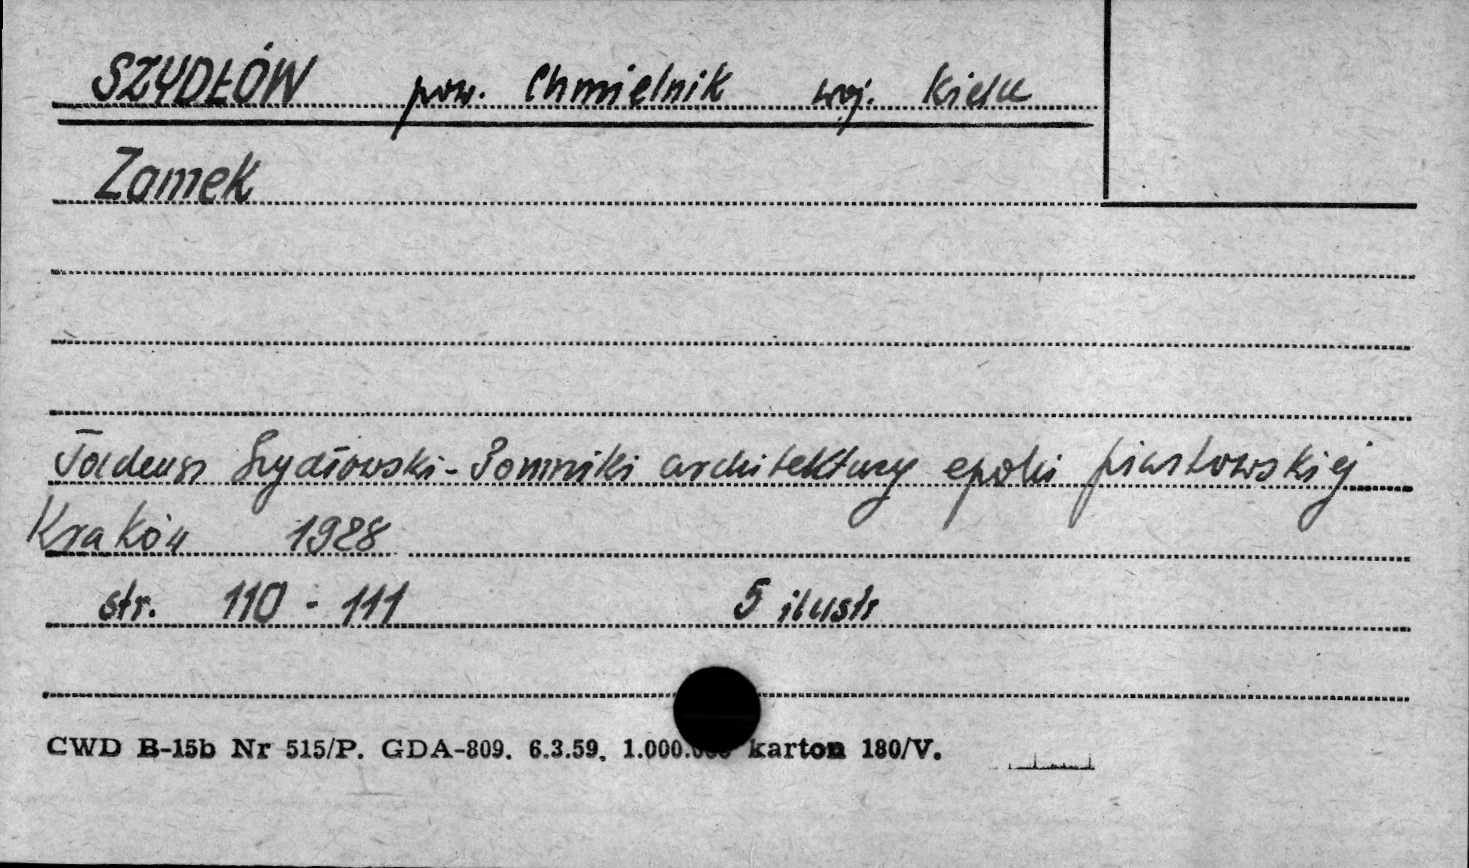 SZYDŁÓW pow. Chmielnik woj. Kielce
Zamek
Tadeusz Szydłowski - Pomniki architektury epoki piastowskiej
Kraków 1928
str. 110 - 111 5 ilustr
CWD B-15b Nr 515/P. GDA-809. 6.3.59. 1.000.000 karton 180/V.